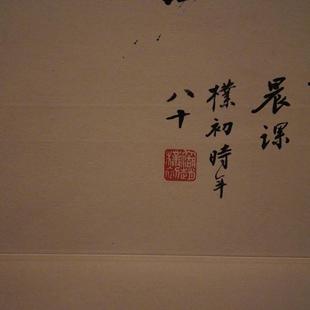 晨课
樸初時年
八十